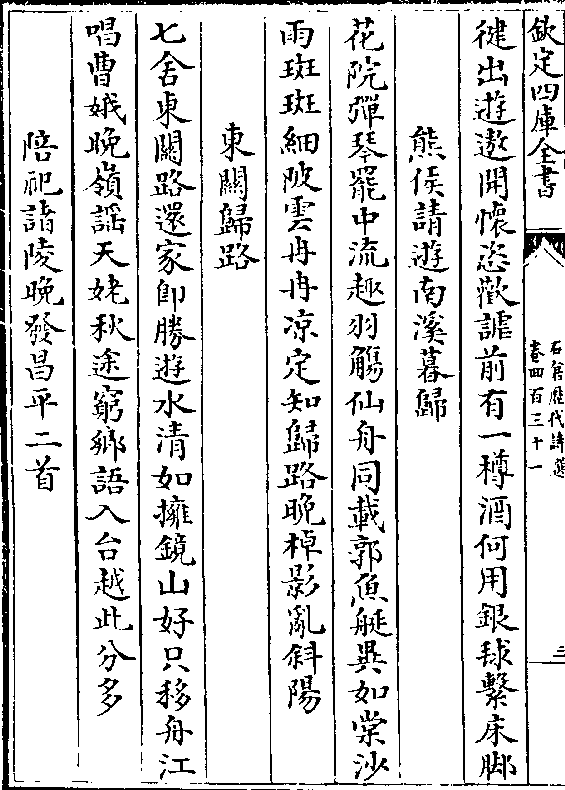 欽定四庫全書
石倉歷代詩選
卷四百三十一
三
健出遊遨開懷恣歡謔前有一樽酒何用銀毬繫床脚
熊侯請遊南溪暮歸
花院彈琴罷中流趣羽觴仙舟同載郭魚艇異如棠沙
雨斑斑細陂雲冉冉凉定知歸路晚棹影亂斜陽
東關歸路
七舍東關路還家即勝遊水清如擁鏡山好只移舟江
唱曹娥晚嶺謡天姥秋途窮鄉語入台越此分多
陪祀諸陵晚發昌平二首